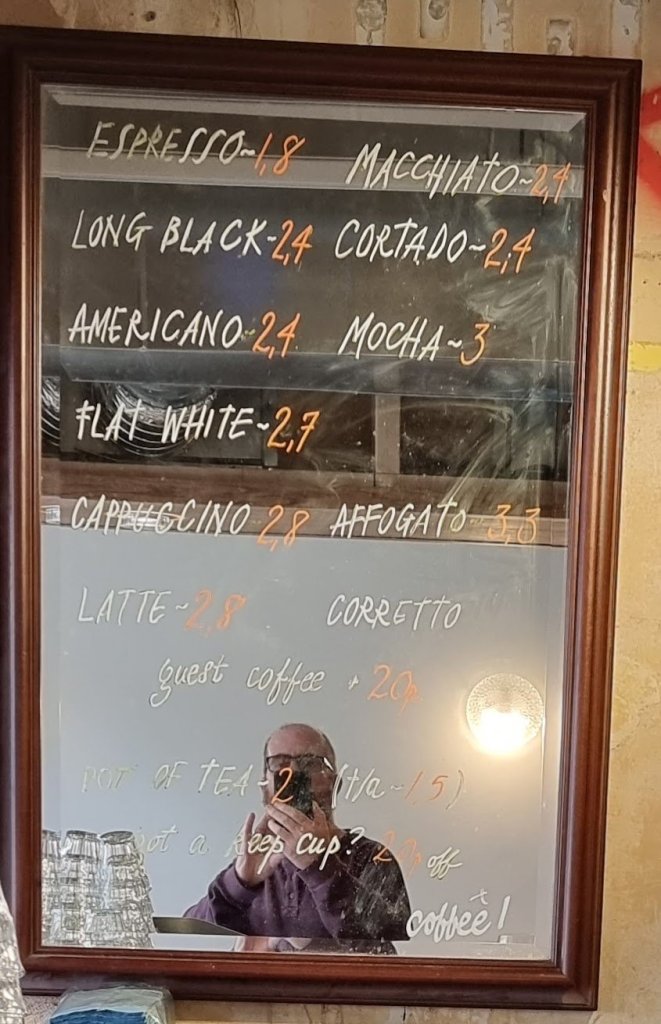 ESPRESSO~1,8 MACCHIATO~2,4
LONG BLACK~2,4 CORTADO~2,4
AMERICANO~2,4 MOCHA~3
FLAT WHITE~2,7
CAPPUCCINO~2,8 AFFOGATO~3,3
LATTE~2,8 CORRETTO
guest coffee + 20p
POT OF TEA~2 (t/a~1,5)
got a keep cup? 20p off
coffee!